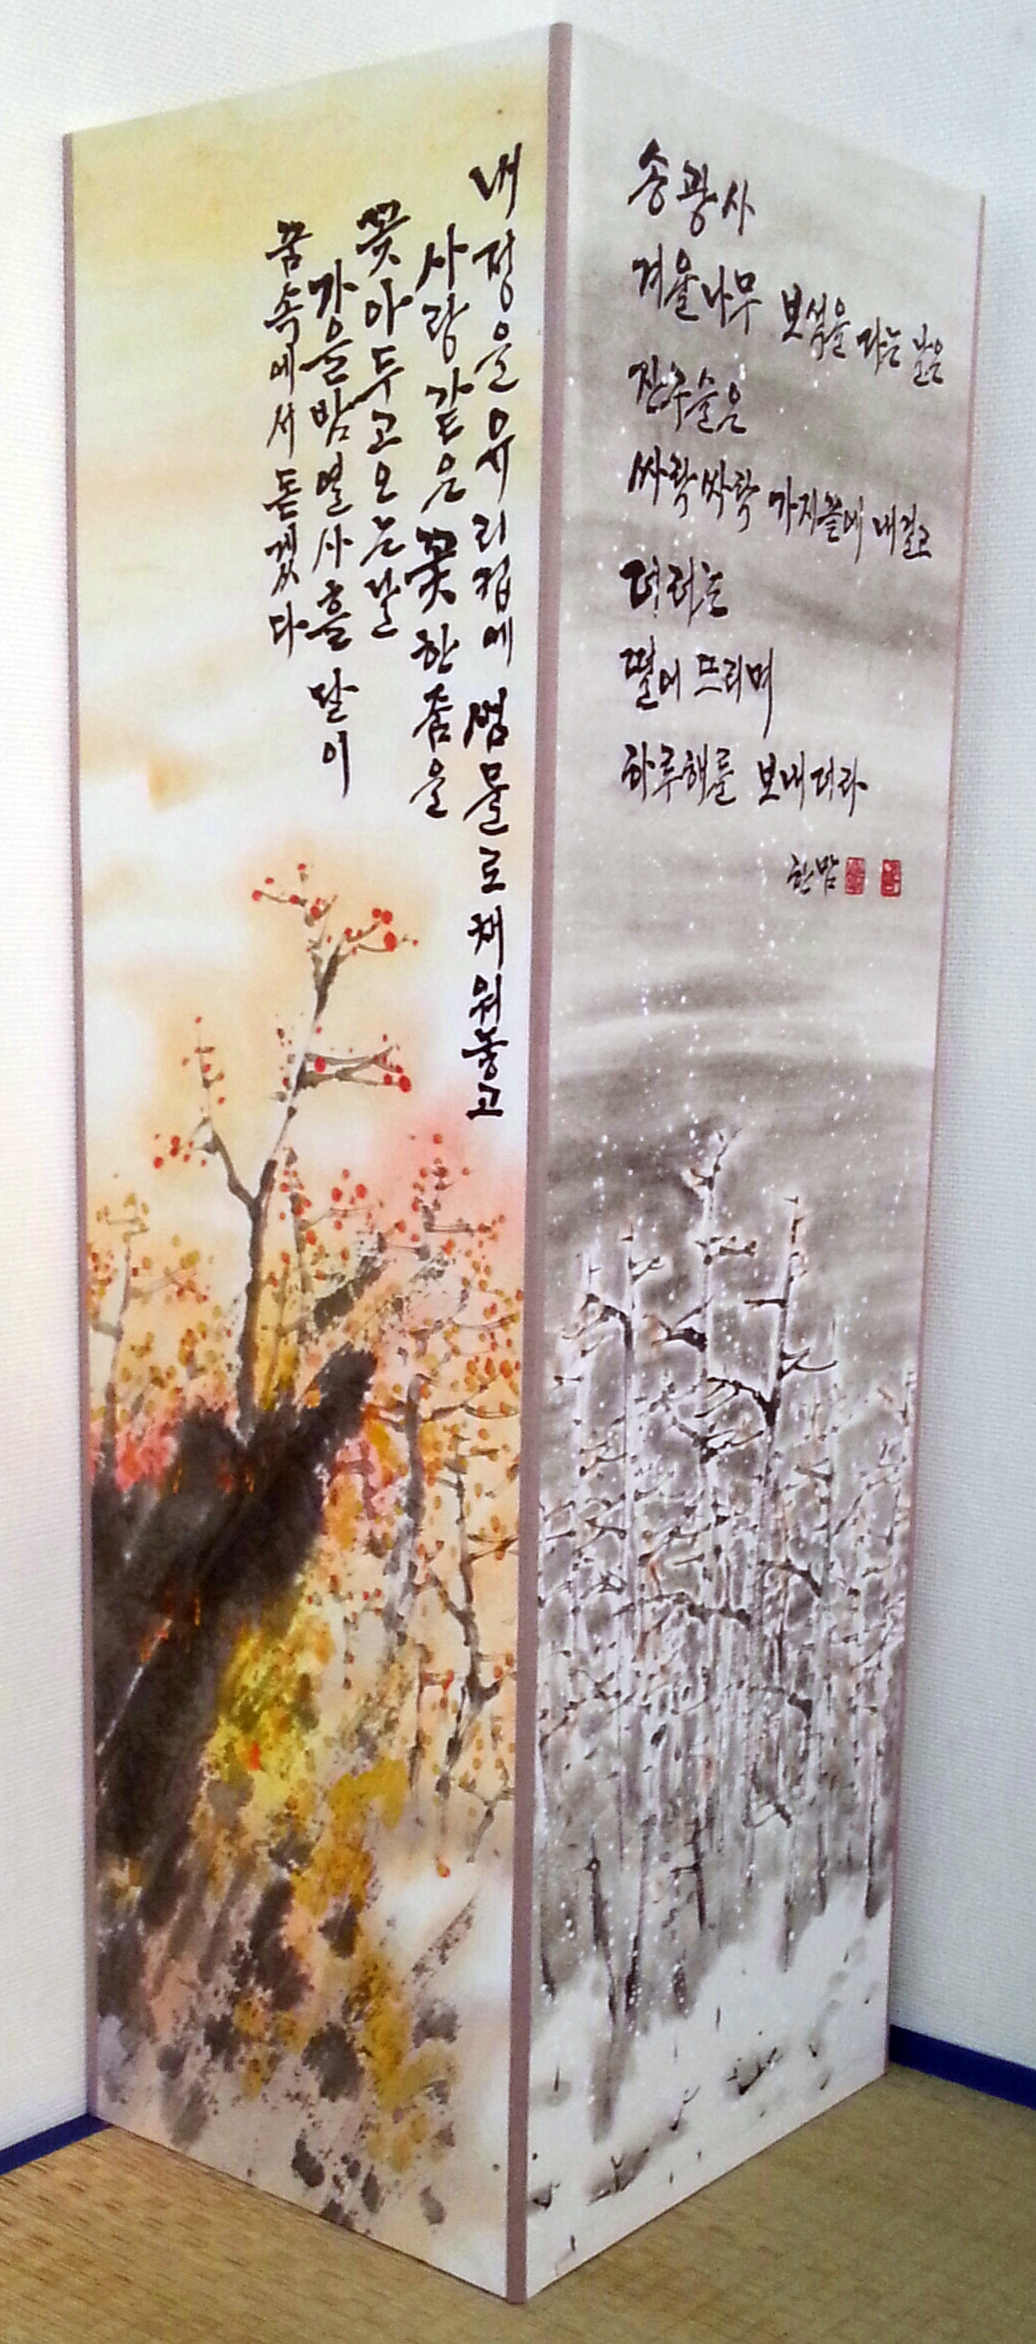 내 정을 유리컵에 샘물로 채워놓고
사랑 같은 꽃 한 줌을
꽃아두고 오는 날
가을밤 열사흘 달이
꿈속에서 돋겠다
송광사
겨울나무 보석을 파는 날은
잔구슬은
싸락싸락 가지끝에 내걸고
더러는
떨어뜨리며
하루해를 보내더라
한맘